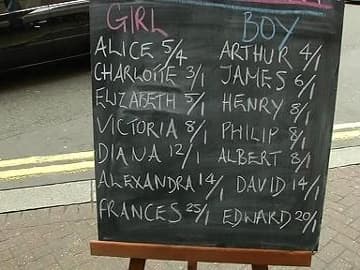 GIRL BOY
ALICE 5/4 ARTHUR 4/1
CHARLOTTE 3/1 JAMES 6/1
ELIZABETH 5/1 HENRY 8/1
VICTORIA 8/1 PHILIP 8/1
DIANA 12/1 ALBERT 8/1
ALEXANDRA 14/1 DAVID 14/1
FRANCES 25/1 EDWARD 20/1